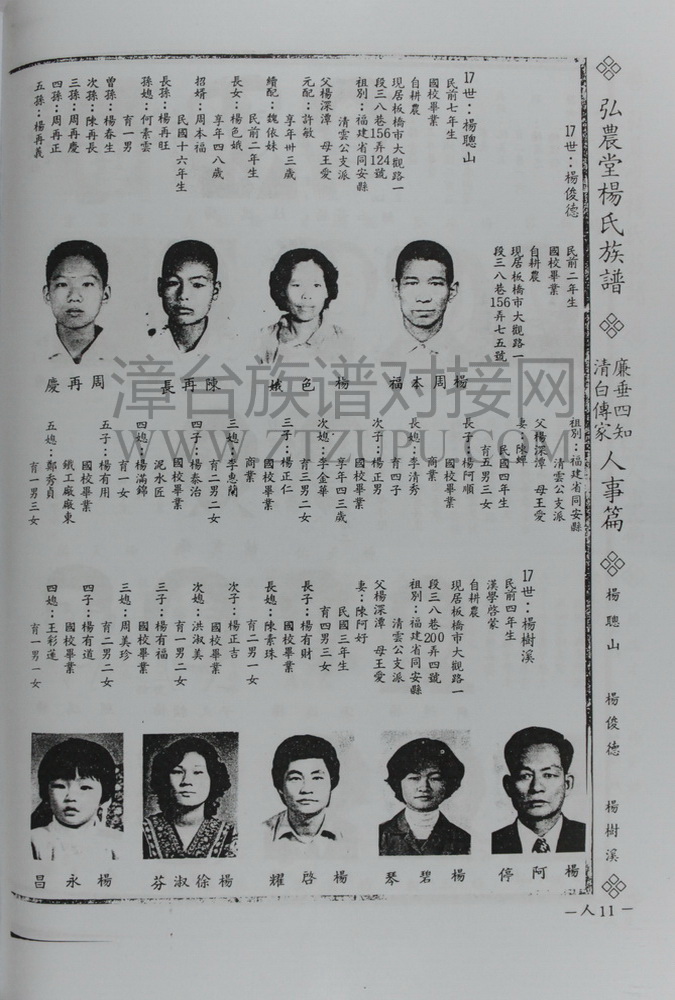 弘農堂楊氏族譜
廉垂四知
清白傳家
人事篇
楊聰山
楊俊德
楊樹溪
—人11—
17世：楊俊德
民前二年生
國校畢業
自耕農
現居板橋市大觀路一
段三八巷156弄七五號
祖別：福建省同安縣
清雲公支派
父楊深潭 母王愛
妻：陳蟬
民國四年生
育五男三女
長子：楊阿順
國校畢業
商業
長媳：李清秀
育四子
次子：楊正男
國校畢業
享年四三歲
次媳：李金華
育三男二女
三子：楊正仁
國校畢業
商業
三媳：李惠蘭
育二男二女
四子：楊泰治
國校畢業
泥水匠
四媳：楊滿錦
育一女
五子：楊有用
國校畢業
鐵工廠廠東
五媳：鄭秀貞
育一男三女
17世：楊聰山
民前七年生
國校畢業
自耕農
現居板橋市大觀路一
段三八巷156弄124號
祖別：福建省同安縣
清雲公支派
父楊深潭 母王愛
元配：許敏
享年卅三歲
續配：魏依妹
民前二年生
長女：楊色娥
享年四八歲
招婿：周本福
民國十六年生
長孫：楊再旺
孫媳：何素雲
育一男
曾孫：楊春生
次孫：陳再長
三孫：周再慶
四孫：周再正
五孫：楊再義
楊周本福
楊色娥
陳再長
周再慶
17世：楊樹溪
民前四年生
漢學啓蒙
自耕農
現居板橋市大觀路一
段三八巷200弄四號
祖別：福建省同安縣
清雲公支派
父楊深潭 母王愛
妻：陳阿好
民國三年生
育四男三女
長子：楊有財
國校畢業
長媳：陳素珠
育二男一女
次子：楊正吉
國校畢業
次媳：洪淑美
育一男二女
三子：楊有福
國校畢業
三媳：周美珍
育二男二女
四子：楊有道
國校畢業
四媳：王彩蓮
育一男一女
楊阿停
楊碧琴
楊啓耀
楊徐淑芬
楊永昌
漳台族谱对接网
WWW.ZTZUPU.COM